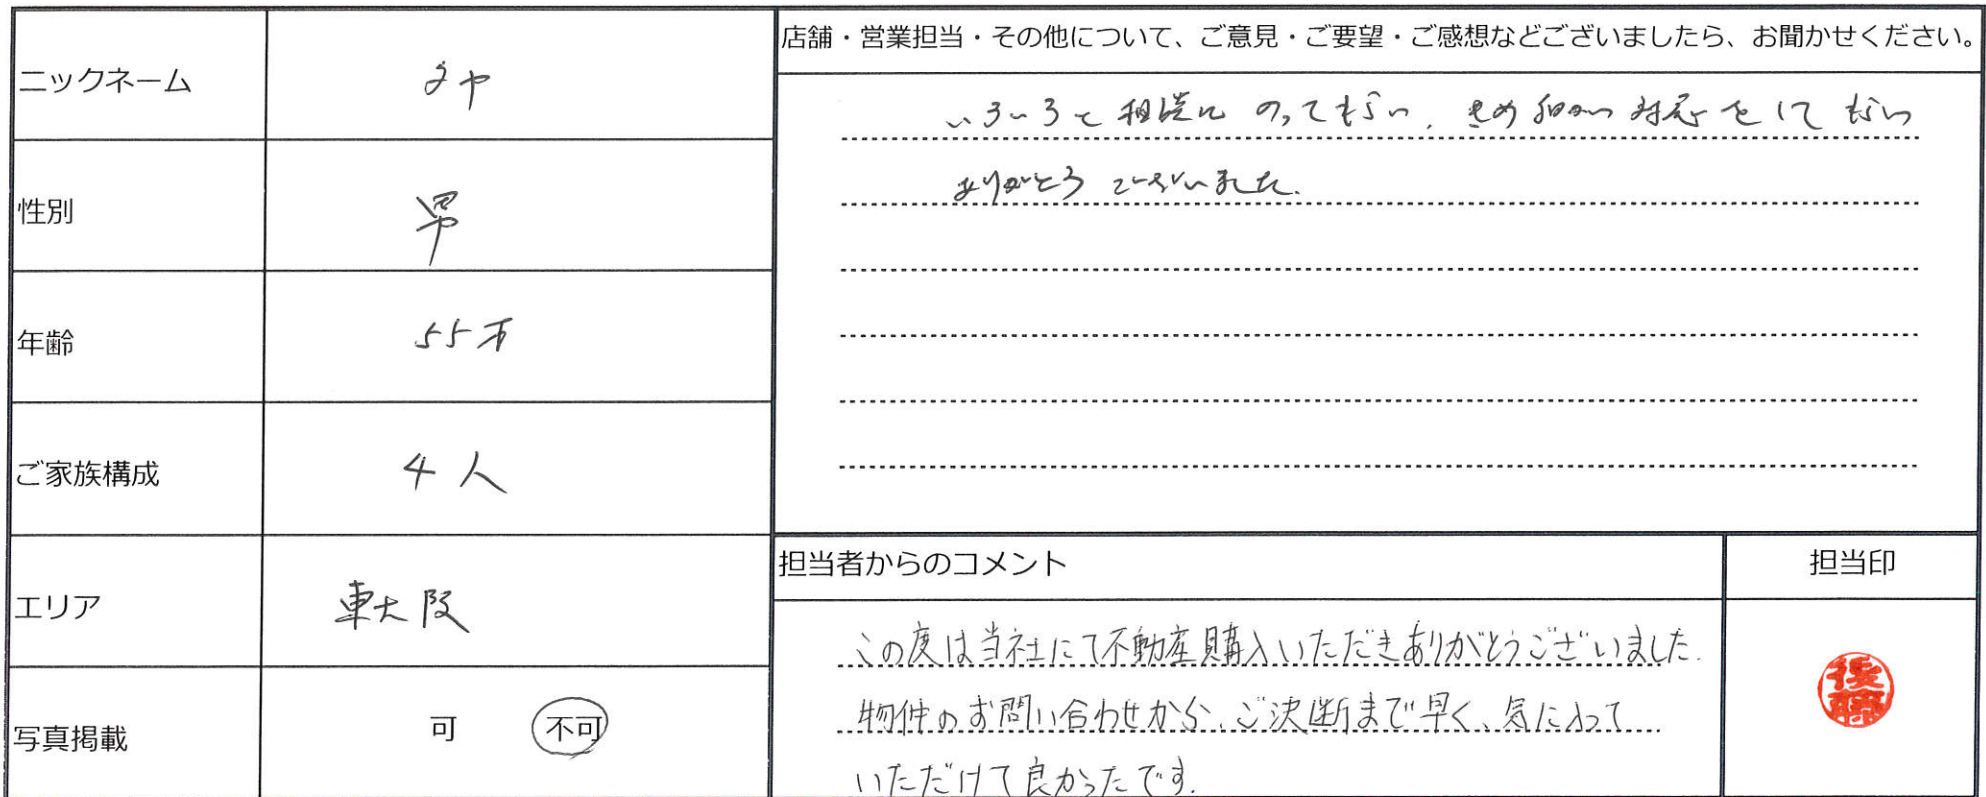 ニックネーム
性別
男
年齢
55才
ご家族構成
4人
エリア
東大阪
写真掲載
可 不可
店舗・営業担当・その他について、ご意見・ご要望・ご感想などございましたら、お聞かせください。
いろいろと相談にのってもらい、きめ細かい対応をしてもらい
ありがとうございました.
担当者からのコメント
この度は当社にて不動産購入いただきありがとうございました.
物件のお問い合わせから、ご決断まで早く、気に入って
いただけて良かったです.
担当印
後藤